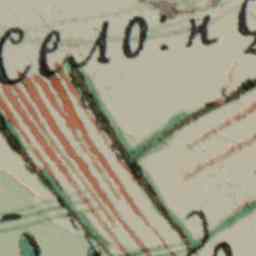 село: н